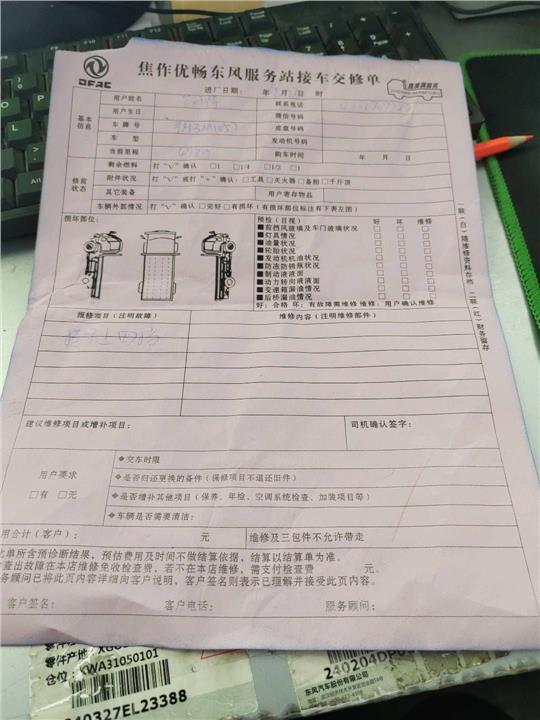 DFAC
焦作优畅东风服务站接车交修单
进厂日期： 年 月 日 时
基本信息
用户姓名 联系电话
用户生日 微信号码
车牌号 底盘号码
车型 发动机号码
当前里程 购车时间 年 月 日
修前状态
剩余燃料 打“√”确认：□1 □1/4 □1/2 □1
附件状况 打“√”或打“×”确认：□工具□灭火器□备胎□千斤顶
其它装备 用户寄存物品
车辆外部情况 打“√”确认□完好□有损坏(有损坏部位标注有下表左图)
损坏部位：
预检(目视) 好 坏 维修
■前挡风玻璃及车门玻璃状况 □ □ □
■灯具情况 □ □ □
■油量状况 □ □ □
■轮胎状况 □ □ □
■发动机机油状况 □ □ □
■防冻防锈瓶状况 □ □ □
■制动液液面 □ □ □
■动力转向液液面 □ □ □
■变速箱漏油情况 □ □ □
■后桥漏油情况 □ □ □
好：合格 坏：有故障需维修 维修：用户确认维修
报修项目(注明故障) 维修内容(注明维修部件)
建议维修项目或增补项目： 司机确认签字：
用户要求
□有 □无
◆交车时限
◆是否归还更换的备件(保修项目不退还旧件)
◆是否增补其他项目(保养、年检、空调系统检查、加装项目等)
◆车辆是否需要清洁：
用合计(客户)： 元 维修及三包件不允许带走
此单所含预诊断结果，预估费用及时间不做结算依据，结算以结算单为准。
查出故障在本店维修免收检查费，若不在本店维修，需支付检查费 元。
务顾问已将此页内容详细向客户说明，客户签名则表示已理解并接受此页内容。
客户签名： 客户电话： 服务顾问：
一联(白)随维修资料存档 二联(红)财务留存
零件产地：
仓位：KWA31050101
240327EL23388
240204DP0
东风汽车股份有限公司